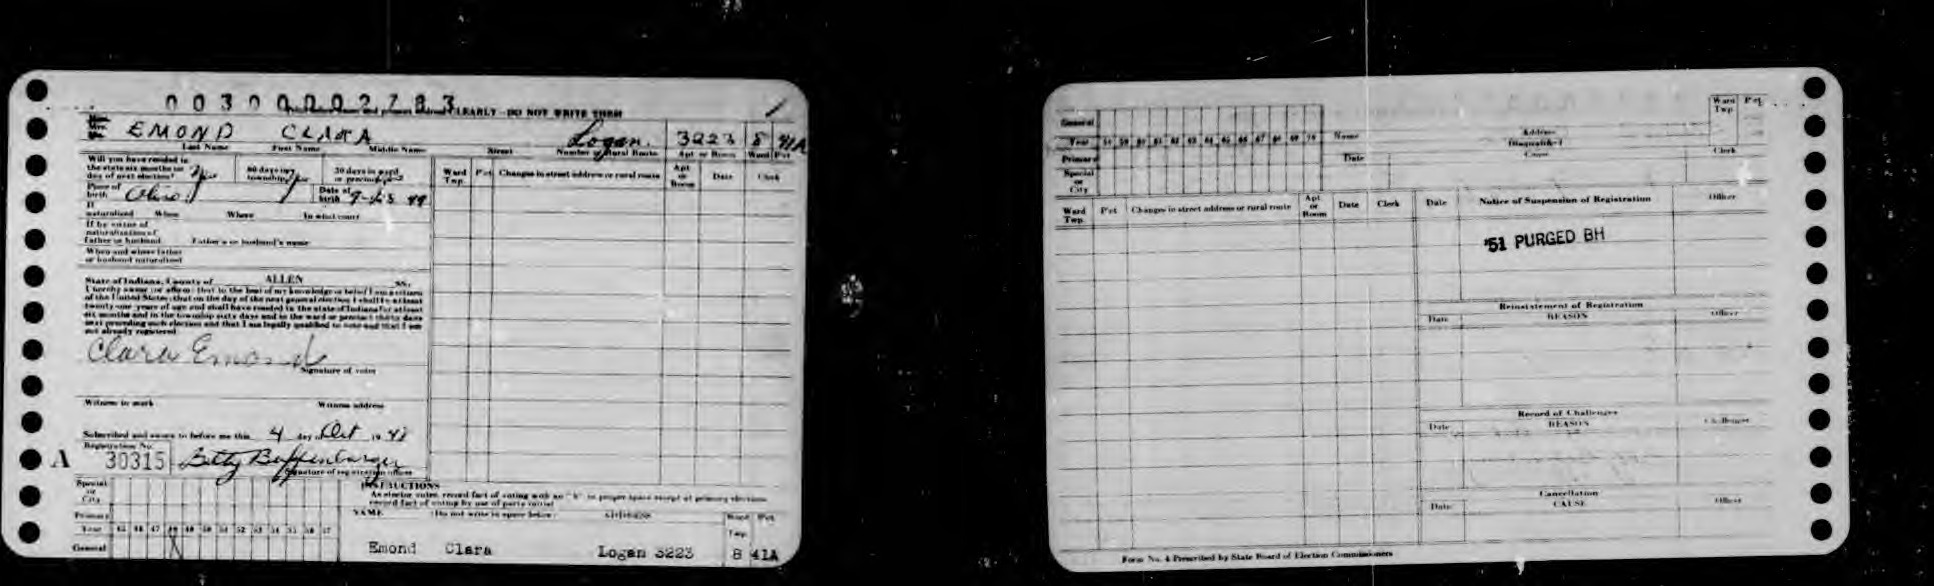 00300002783 CLEARLY - DO NOT WRITE THEM
EMOND CLARA Logan 3223 8 41A
Last Name First Name Middle Name Street Number or Rural Route Apt or Room Ward Pct
Will you have resided in
the state six months on
day of next election?
60 days in
township
30 days in ward
or precinct
Place of
birth Ohio
Date of
birth
If
naturalized When Where In what court
If by virtue of
naturalization of
father or husband Father's or husband's name
When and where father
or husband naturalized
Ward Twp. Pct Changes in street address or rural route Apt. or Room Date Clerk
State of Indiana, County of ALLEN SS.
I hereby swear (or affirm) that to the best of my knowledge or belief I am a citizen
of the United States; that on the day of the next general election I shall be at least
twenty-one years of age and shall have resided in the state of Indiana for at least
six months and in the township sixty days and in the ward or precinct thirty days
next preceding such election and that I am legally qualified to vote and that I am
not already registered
Clara Emond
Signature of voter
Witness to mark Witness address
Subscribed and sworn to before me this 4 day of Oct 19
Registration No.
A 30315 Betty
Signature of registration officer
INSTRUCTIONS
As elector votes, record fact of voting with an "X" in proper space except at primary elections
record fact of voting by use of party initial
Special
or
City
Primary
Year 45 46 47 48 49 50 51 52 53 54 55 56 57
General X
NAME (Do not write in space below) ADDRESS Ward Twp. Pct.
Emond Clara Logan 3223 8 41A
General
Year 59 60 61 62 63 64 65 66 67 68 69 70
Primary
Special
or
City
Name Address Ward Twp. Pct.
Disqualified
Date Cause Clerk
Ward Twp. Pct Changes in street address or rural route Apt. or Room Date Clerk
Date Notice of Suspension of Registration Officer
'51 PURGED BH
Reinstatement of Registration
Date REASON Officer
Record of Challenges
Date REASON Challenger
Cancellation
Date CAUSE Officer
Form No. 4 Prescribed by State Board of Election Commissioners